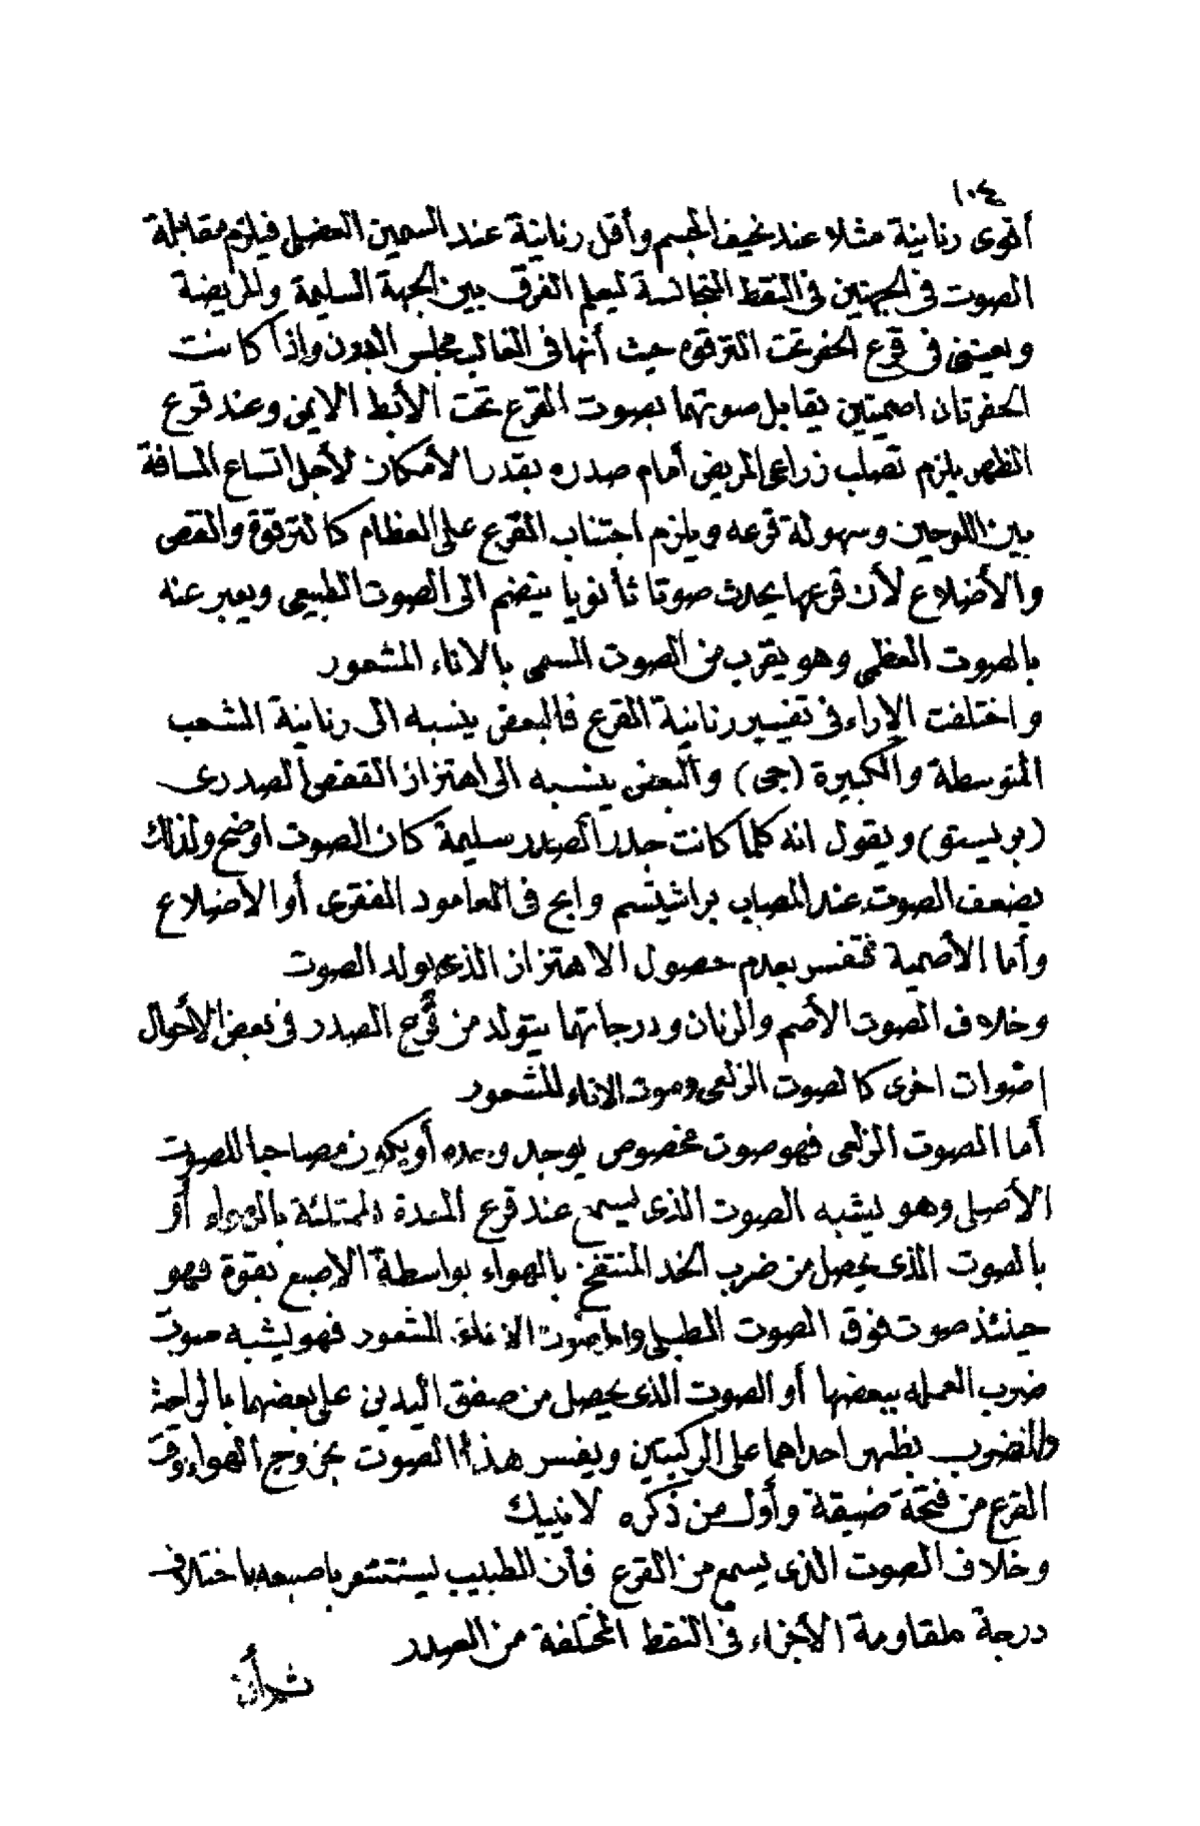 ١٠٤
أقوى رنانية مثلا عند نحيف الجسم وأقل رنانية عند السمين العضلى فيلزم مقابلة
الصوت فى الجهتين فى النقط المتجانسة ليعلم الفرق بين الجهة السليمة والمريضة
ويعتنى فى قرع الحفر تحت الترقوه حيث أنها فى الغالب مجلس الدرن واذا كانت
الحفرتان اصميتين يقابل صوتهما بصوت القرع تحت الأبط الايمن وعند قرع
الظهر يلزم تصلب زراعى المريض أمام صدره بقدر الأمكان لأجل اتساع المسافة
بين اللوحين وسهولة قرعه ويلزم اجتناب القرع على العظام كالترقوة والقص
والأضلاع لأن قرعها يحدث صوتا ثانويا ينضم الى الصوت الطبيعى ويعبر عنه
بالصوت العظمى وهو يقرب من الصوت المسمى بالاناء المشعور
واختلفت الاراء فى تفسير رنانية القرع فالبعض ينسبه الى رنانية الشعب
المتوسطة والكبيرة (جى) والبعض ينسبه الى اهتزاز القفص الصدرى
(بوبيستو) ويقول انه كلما كانت جدر الصدر سليمة كان الصوت اوضح ولذلك
يضعف الصوت عند المصاب براشيتسم وابح فى العامود الفقرى أو الأضلاع
وأما الأصمية فتفسر بعدم حصول الاهتزاز الذى يولد الصوت
وخلاف الصوت الأصم والرنان ودرجاتهما يتولد من قرع الصدر فى بعض الأحوال
اصوات اخرى كالصوت الزلعى وصوت الاناء المشعور
أما الصوت الزلعى فهو صوت مخصوص يوجد وحده أو يكون مصاحبا للصوت
الأصلى وهو يشبه الصوت الذى يسمع عند قرع المعدة الممتلئة بالهواء أو
بالصوت الذى يحصل من ضرب الخد المنتفخ بالهواء بواسطة الاصبع بقوة فهو
حينئذ صوت فوق الصوت الطبلى واما صوت الاناء المشعور فهو يشبه صوت
ضرب العمله ببعضها أو الصوت الذى يحصل من صفق اليدين على بعضهما بالراحة
والمضروب بظهر احداهما على الركبتين ويفسر هذا الصوت بخروج الهواء وقت
القرع من فتحة ضيقة وأول من ذكره لانييك
وخلاف الصوت الذى يسمع من القرع فأن الطبيب يستشعر باصبعه باختلاف
درجة مقاومة الأجزاء فى النقط المختلفة من الصدر